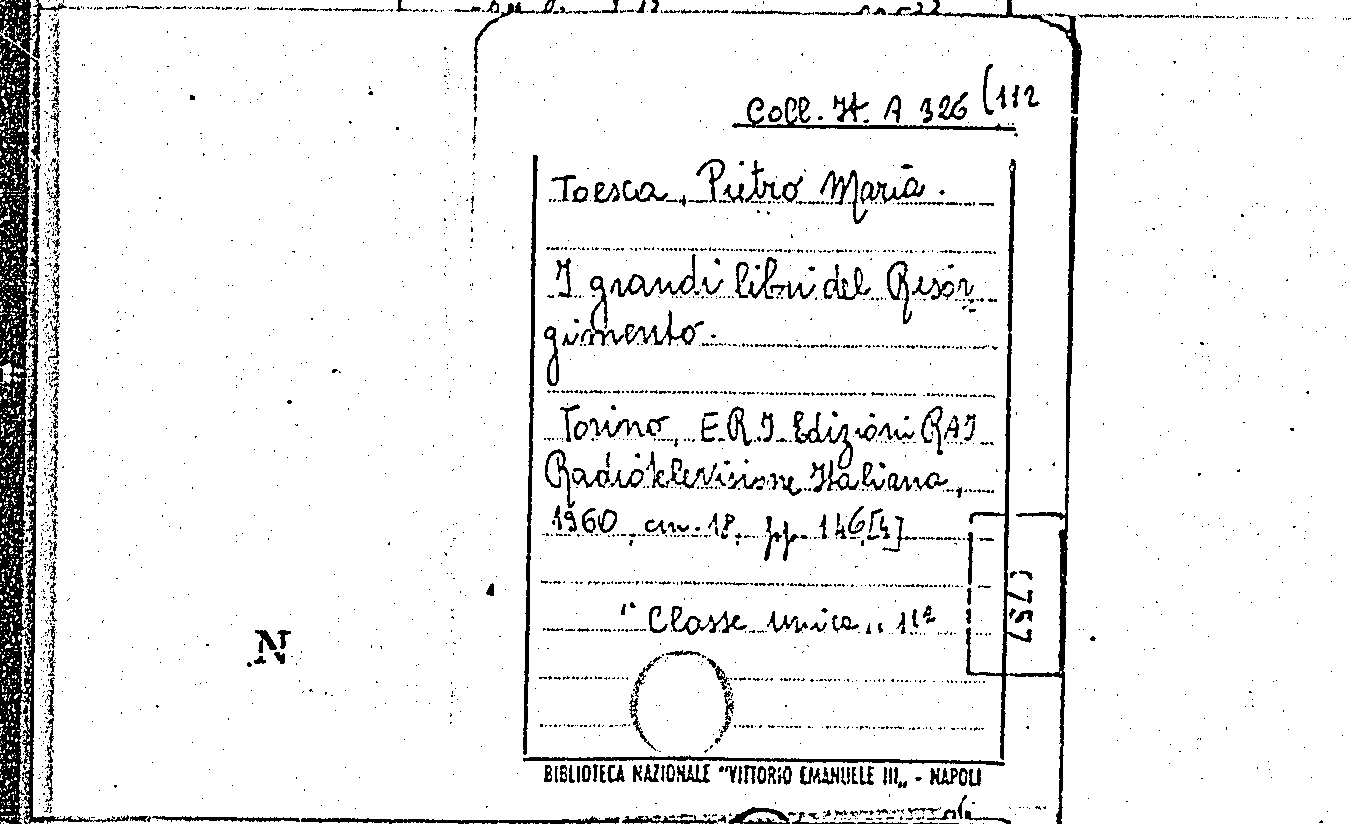 Coll. It. A 326 (112
Toesca, Pietro Maria.
I grandi libri del Risor
gimento.
Torino, E.R.I. Edizioni RAI
Radiotelevisione Italiana,
1960, cm. 18, pp. 146[4]
"Classe unica„ 112
C757
N
BIBLIOTECA NAZIONALE "VITTORIO EMANUELE III„ - NAPOLI